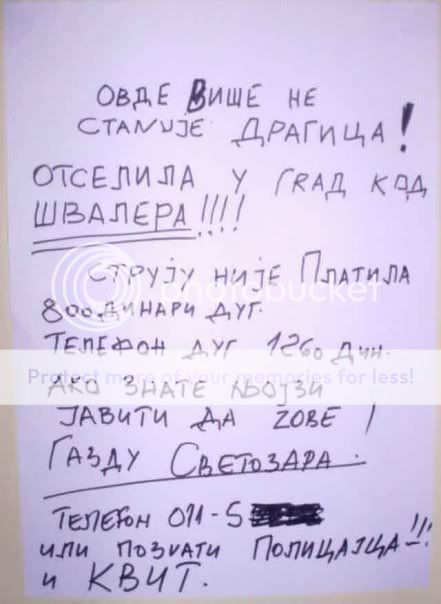 ОВДЕ ВИШЕ НЕ
СТАNУЈЕ ДРАГИЦА!
ОТСЕЛИЛА У ГRАД КОД
ШВАЛЕРА!!!!
СТРУЈУ НИЈЕ ПЛАТИЛА
800 ДИНАРИ ДУГ.
photobucket
ТЕЛЕФОН ДУГ 1260 ДИН.
Protect more of your memories for less!
АКО ЗНАТЕ ЊОЈЗИ
ЈАВИТИ ДА ZОВЕ /
ГАЗДУ СВЕТОЗАРА.
ТЕЛЕFОН 011-5
или ПОЗVАТИ ПОЛИЦАЈЦА-!!!
и КВИТ.